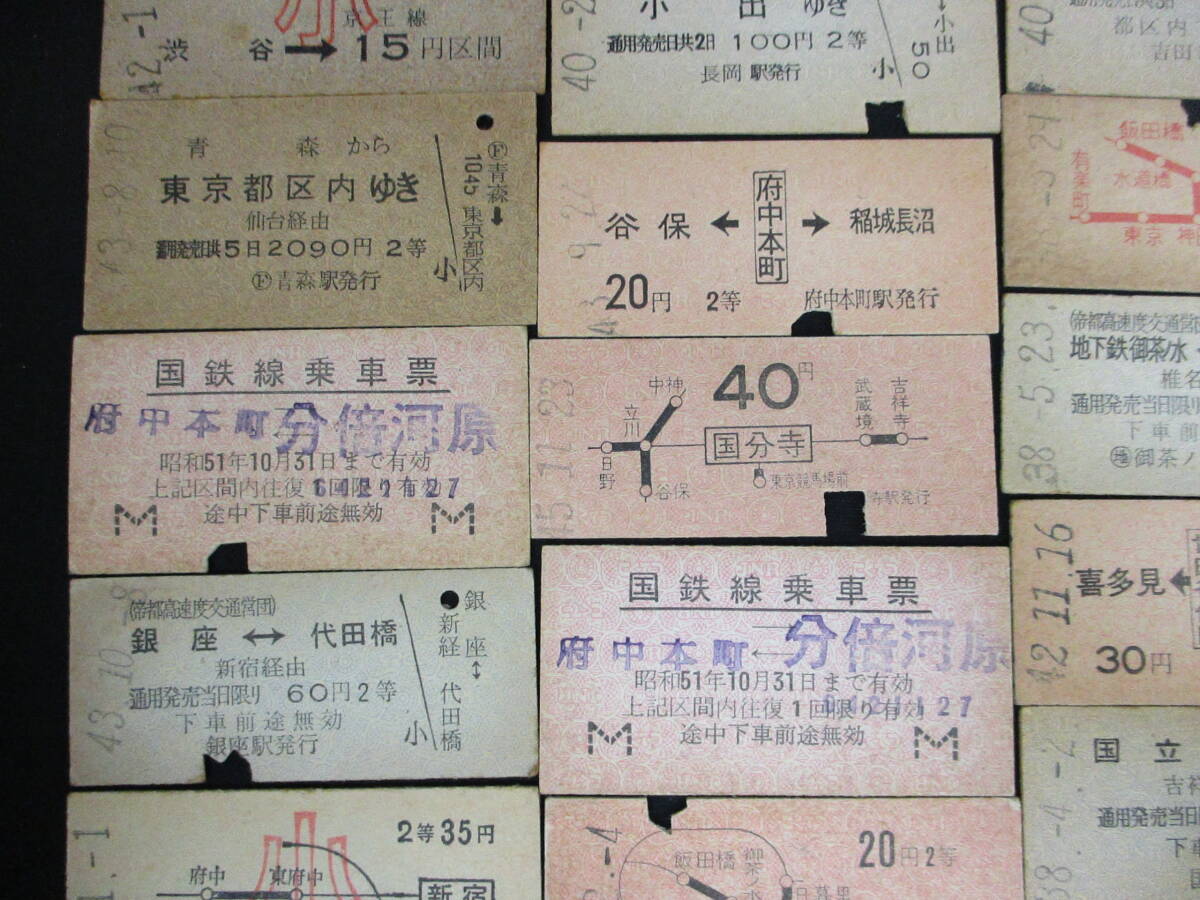 42-1
小
京王線
渋谷→15円区間
40-2
小出ゆき
通用発売日共2日 100円 2等
長岡駅発行
小
↓小出
50
40
都区内
吉田
43-8.10
青森から
東京都区内ゆき
仙台経由
通用発売日共5日2090円 2等
Ⓕ青森駅発行
小
Ⓕ青森→東京都区内
1045
谷保←府中本町→稲城長沼
20円 2等 府中本町駅発行
飯田橋
有楽町
水道橋
東京 神
国鉄線乗車票
府中本町 分倍河原
昭和51年10月31日まで有効
上記区間内往復1回限り有効
途中下車前途無効
M M
45.11.23
40円
中神
立川
日野
谷保
国分寺
東京競馬場前
武蔵境
吉祥寺
寺駅発行
38-5.23.
(帝都高速度交通営団
地下鉄御茶ノ水
椎名
通用発売当日限り
下車前
御茶ノ
43.10.-8
(帝都高速度交通営団)
銀座↔代田橋
新宿経由
通用発売当日限り 60円2等
下車前途無効
銀座駅発行
小
銀座↔代田橋
新経
国鉄線乗車票
府中本町←分倍河原
昭和51年10月31日まで有効
上記区間内往復1回限り有効
途中下車前途無効
M M
42.11.16
喜多見←
30円
2等35円
小
府中
東府中
新宿
-4
20円2等
飯田橋
御茶ノ水
日暮里
38.-4.-2
国立
吉祥
通用発売当日
下車